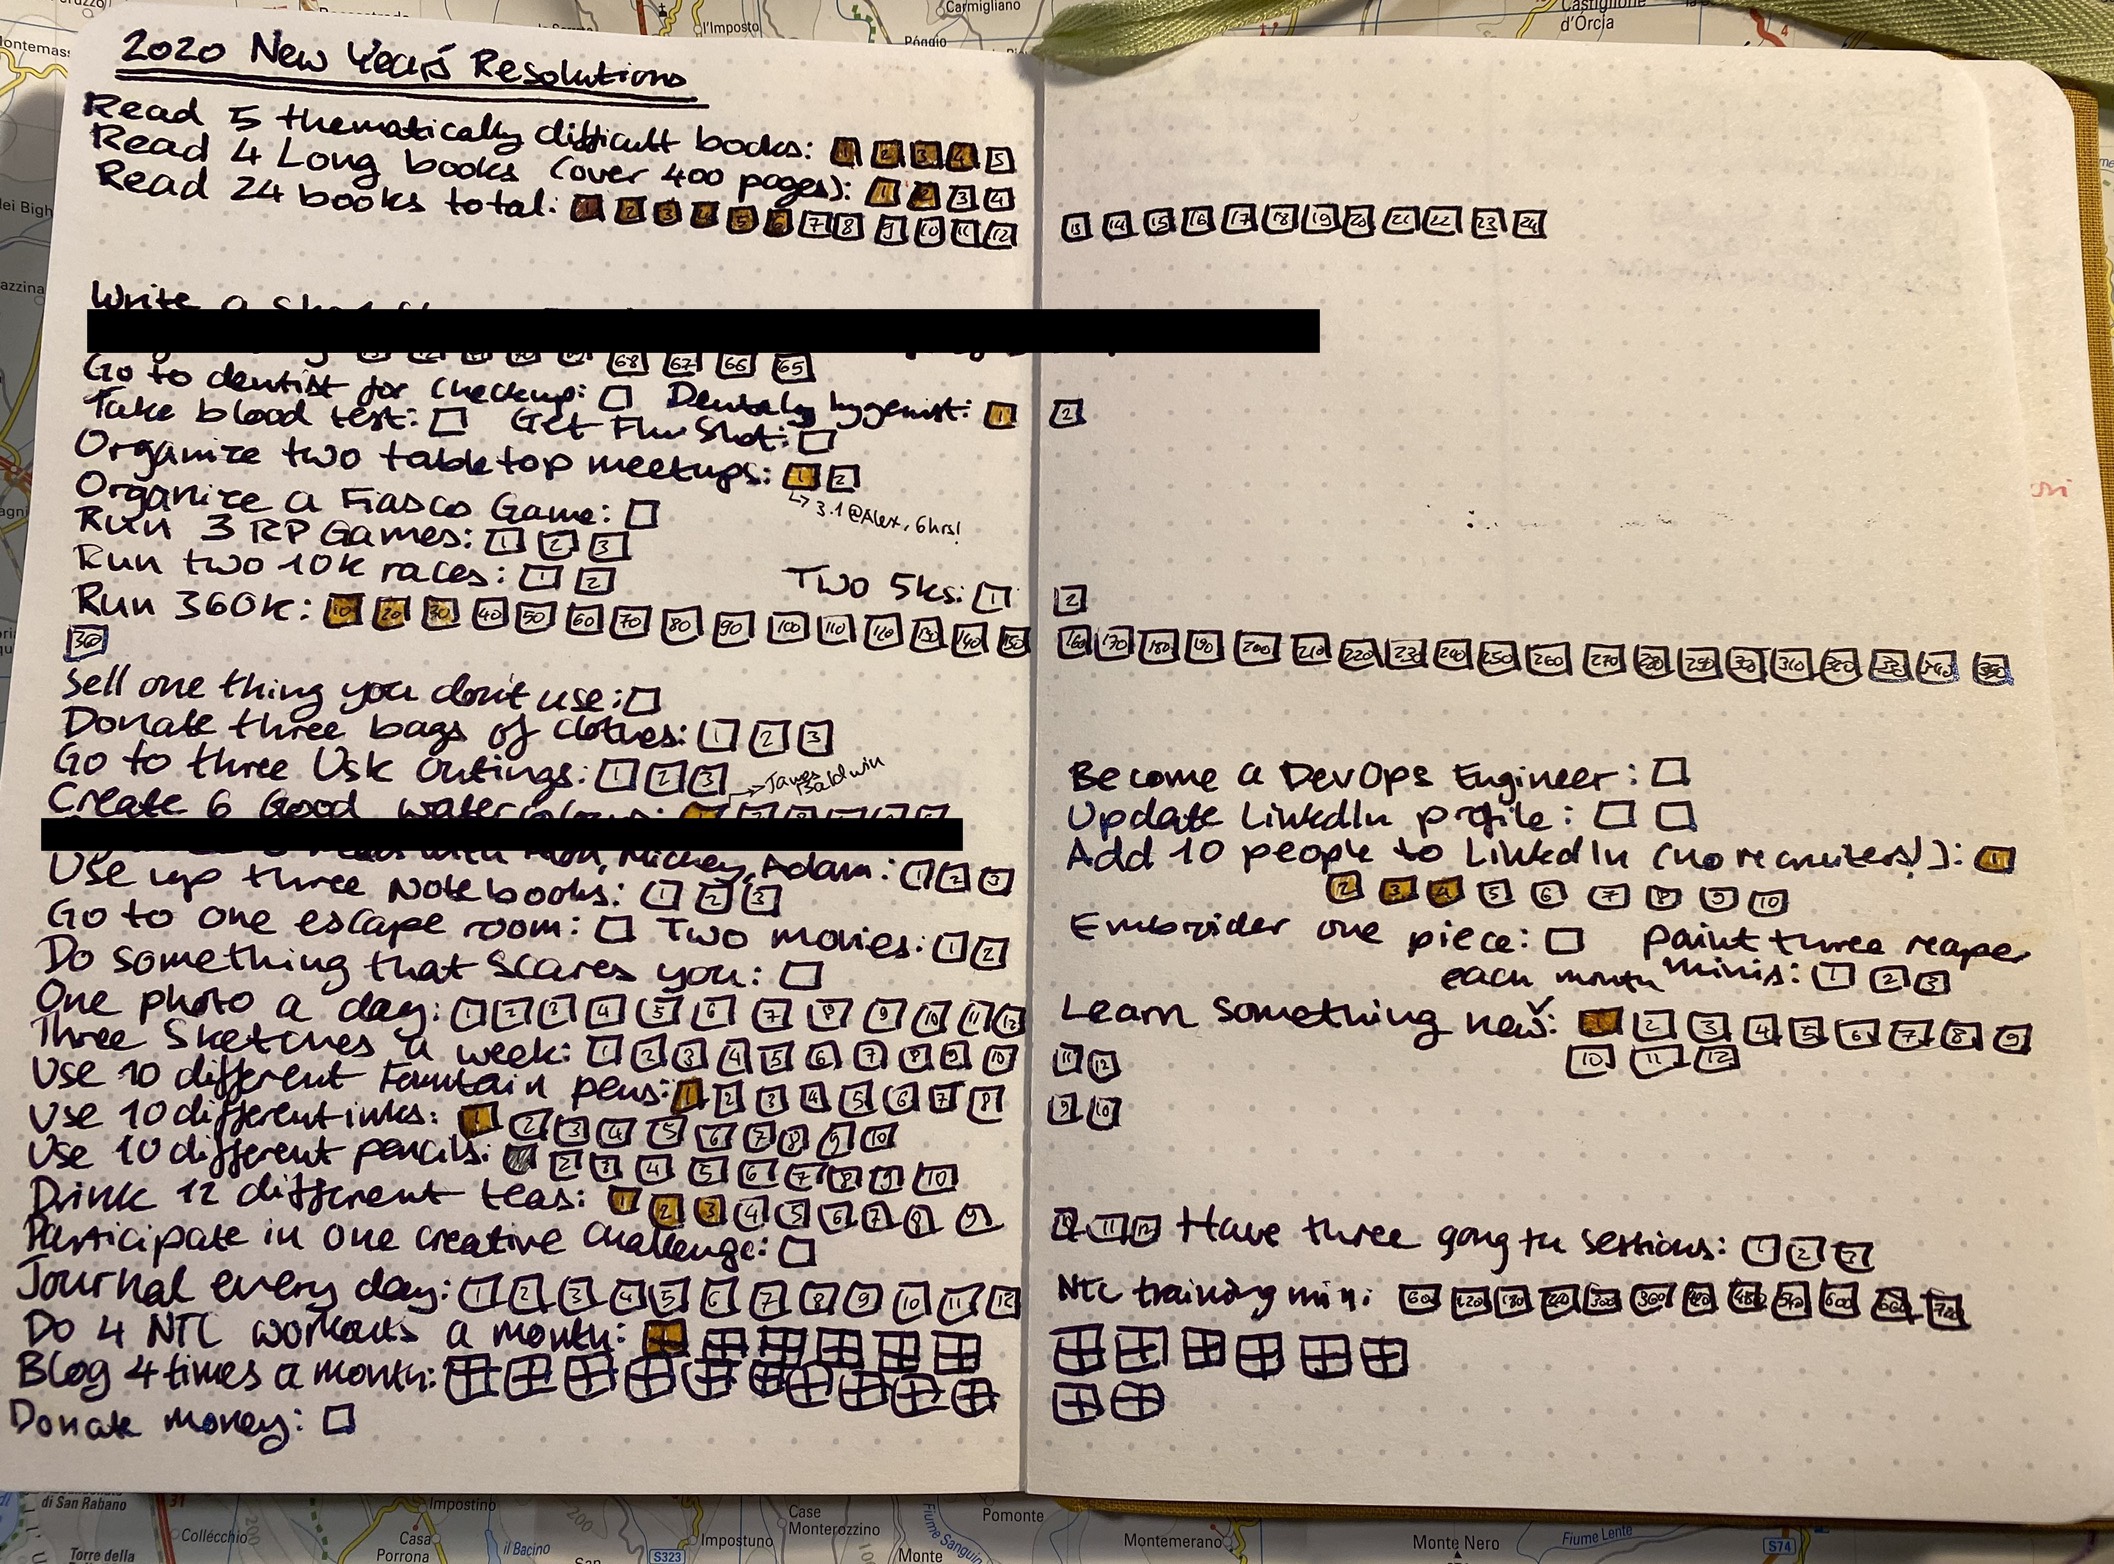 2020 New Year's Resolutions
Read 5 thematically difficult books: 1 2 3 4 5
Read 4 Long books (over 400 pages): 1 2 3 4
Read 24 books total: 1 2 3 4 5 6 7 8 9 10 11 12 13 14 15 16 17 18 19 20 21 22 23 24
Write a
68 67 66 65
Go to dentist for checkup: Dental hygenist: 1 2
Take blood test: Get Flu Shot:
Organize two tabletop meetups: 1 2
→ 3.1 @Alex, 6hrs!
Organize a Fiasco Game:
Run 3 RP Games: 1 2 3
Run two 10k races: 1 2 Two 5ks: 1 2
Run 360k: 10 20 30 40 50 60 70 80 90 100 110 120 130 140 150 160 170 180 190 200 210 220 230 240 250 260 270 280 290 300 310 320 330 340 350
360
Sell one thing you don't use:
Donate three bags of clothes: 1 2 3
Go to three Usk Outings: 1 2 3
→ James Baldwin
Create 6 Good watercolours:
with Alon, Mickey, Adam: 1 2 3
Use up three Notebooks: 1 2 3
Go to one escape room: Two movies: 1 2
Do something that scares you:
One photo a day: 1 2 3 4 5 6 7 8 9 10 11 12
Three Sketches a week: 1 2 3 4 5 6 7 8 9 10 11 12
Use 10 different Fountain pens: 1 2 3 4 5 6 7 8 9 10
Use 10 different inks: 1 2 3 4 5 6 7 8 9 10
Use 10 different pencils: 2 3 4 5 6 7 8 9 10
Drink 12 different teas: 1 2 3 4 5 6 7 8 9 10 11 12
Participate in one creative challenge:
Journal every day: 1 2 3 4 5 6 7 8 9 10 11 12
Do 4 NTC workouts a month:
Blog 4 times a month:
Donate money:
Become a DevOps Engineer:
Update LinkedIn profile:
Add 10 people to LinkedIn (no recruiters!): 1
2 3 4 5 6 7 8 9 10
Embroider one piece: paint three reaper
minis: 1 2 3
each month
Learn something new: 1 2 3 4 5 6 7 8 9
10 11 12
Have three gong fu sessions: 1 2 3
NTC training min: 60 120 180 240 300 360 420 480 540 600 660 720
Carmigliano
l'Imposto
Poggio
Castiglione
d'Orcia
4
Montemass
lei Bigh
azzina
di San Rabano
31
Collecchio
200
Torre della
Impostino
Casa
Porrona
il Bacino
S323
200
Impostuno
Case
Monterozzino
Monte
Fiume
Pomonte
Montemerano
Monte Nero
Fiume Lente
S74